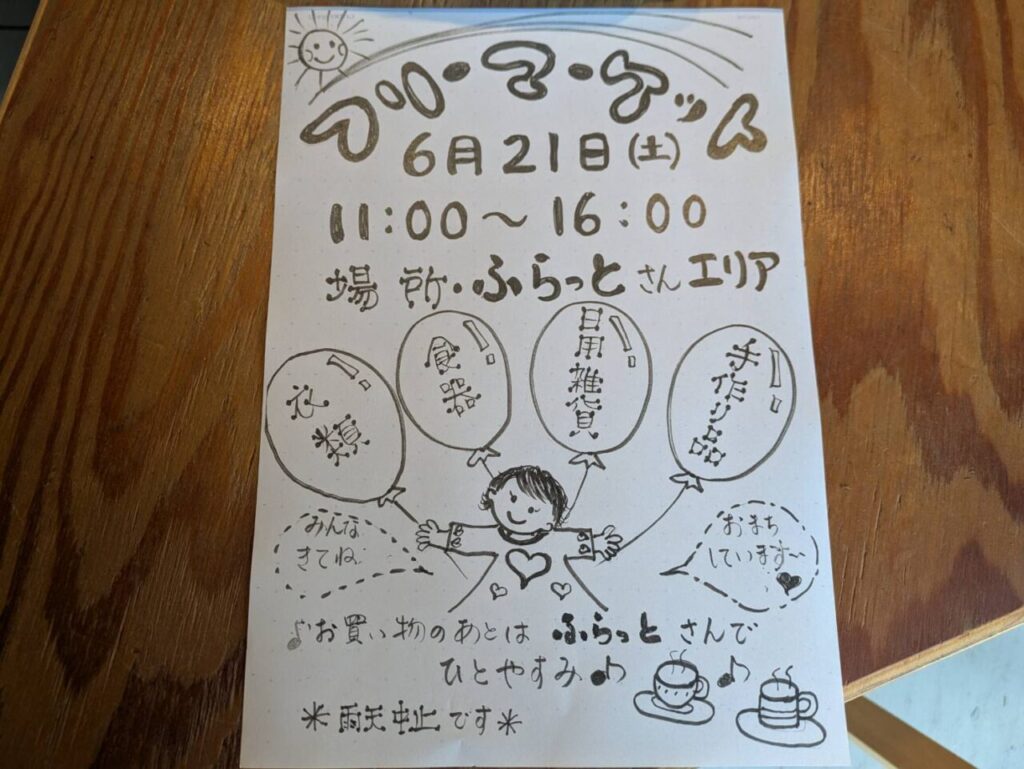 フリ・マ・ケット
6月21日(土)
11:00～16:00
場所・ふらっとさんエリア
衣類
食器
日用雑貨
手作り品
みんな
きてね
おまち
しています~♥
♪お買い物のあとは ふらっと さんで
ひとやすみ♪ ♪
＊雨天中止です＊